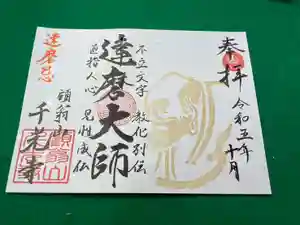 奉拝
令和五年
十月
不立文字 教化別伝
達磨大師
直指人心 見性成仏
達磨忌
頭翁山
千光寺